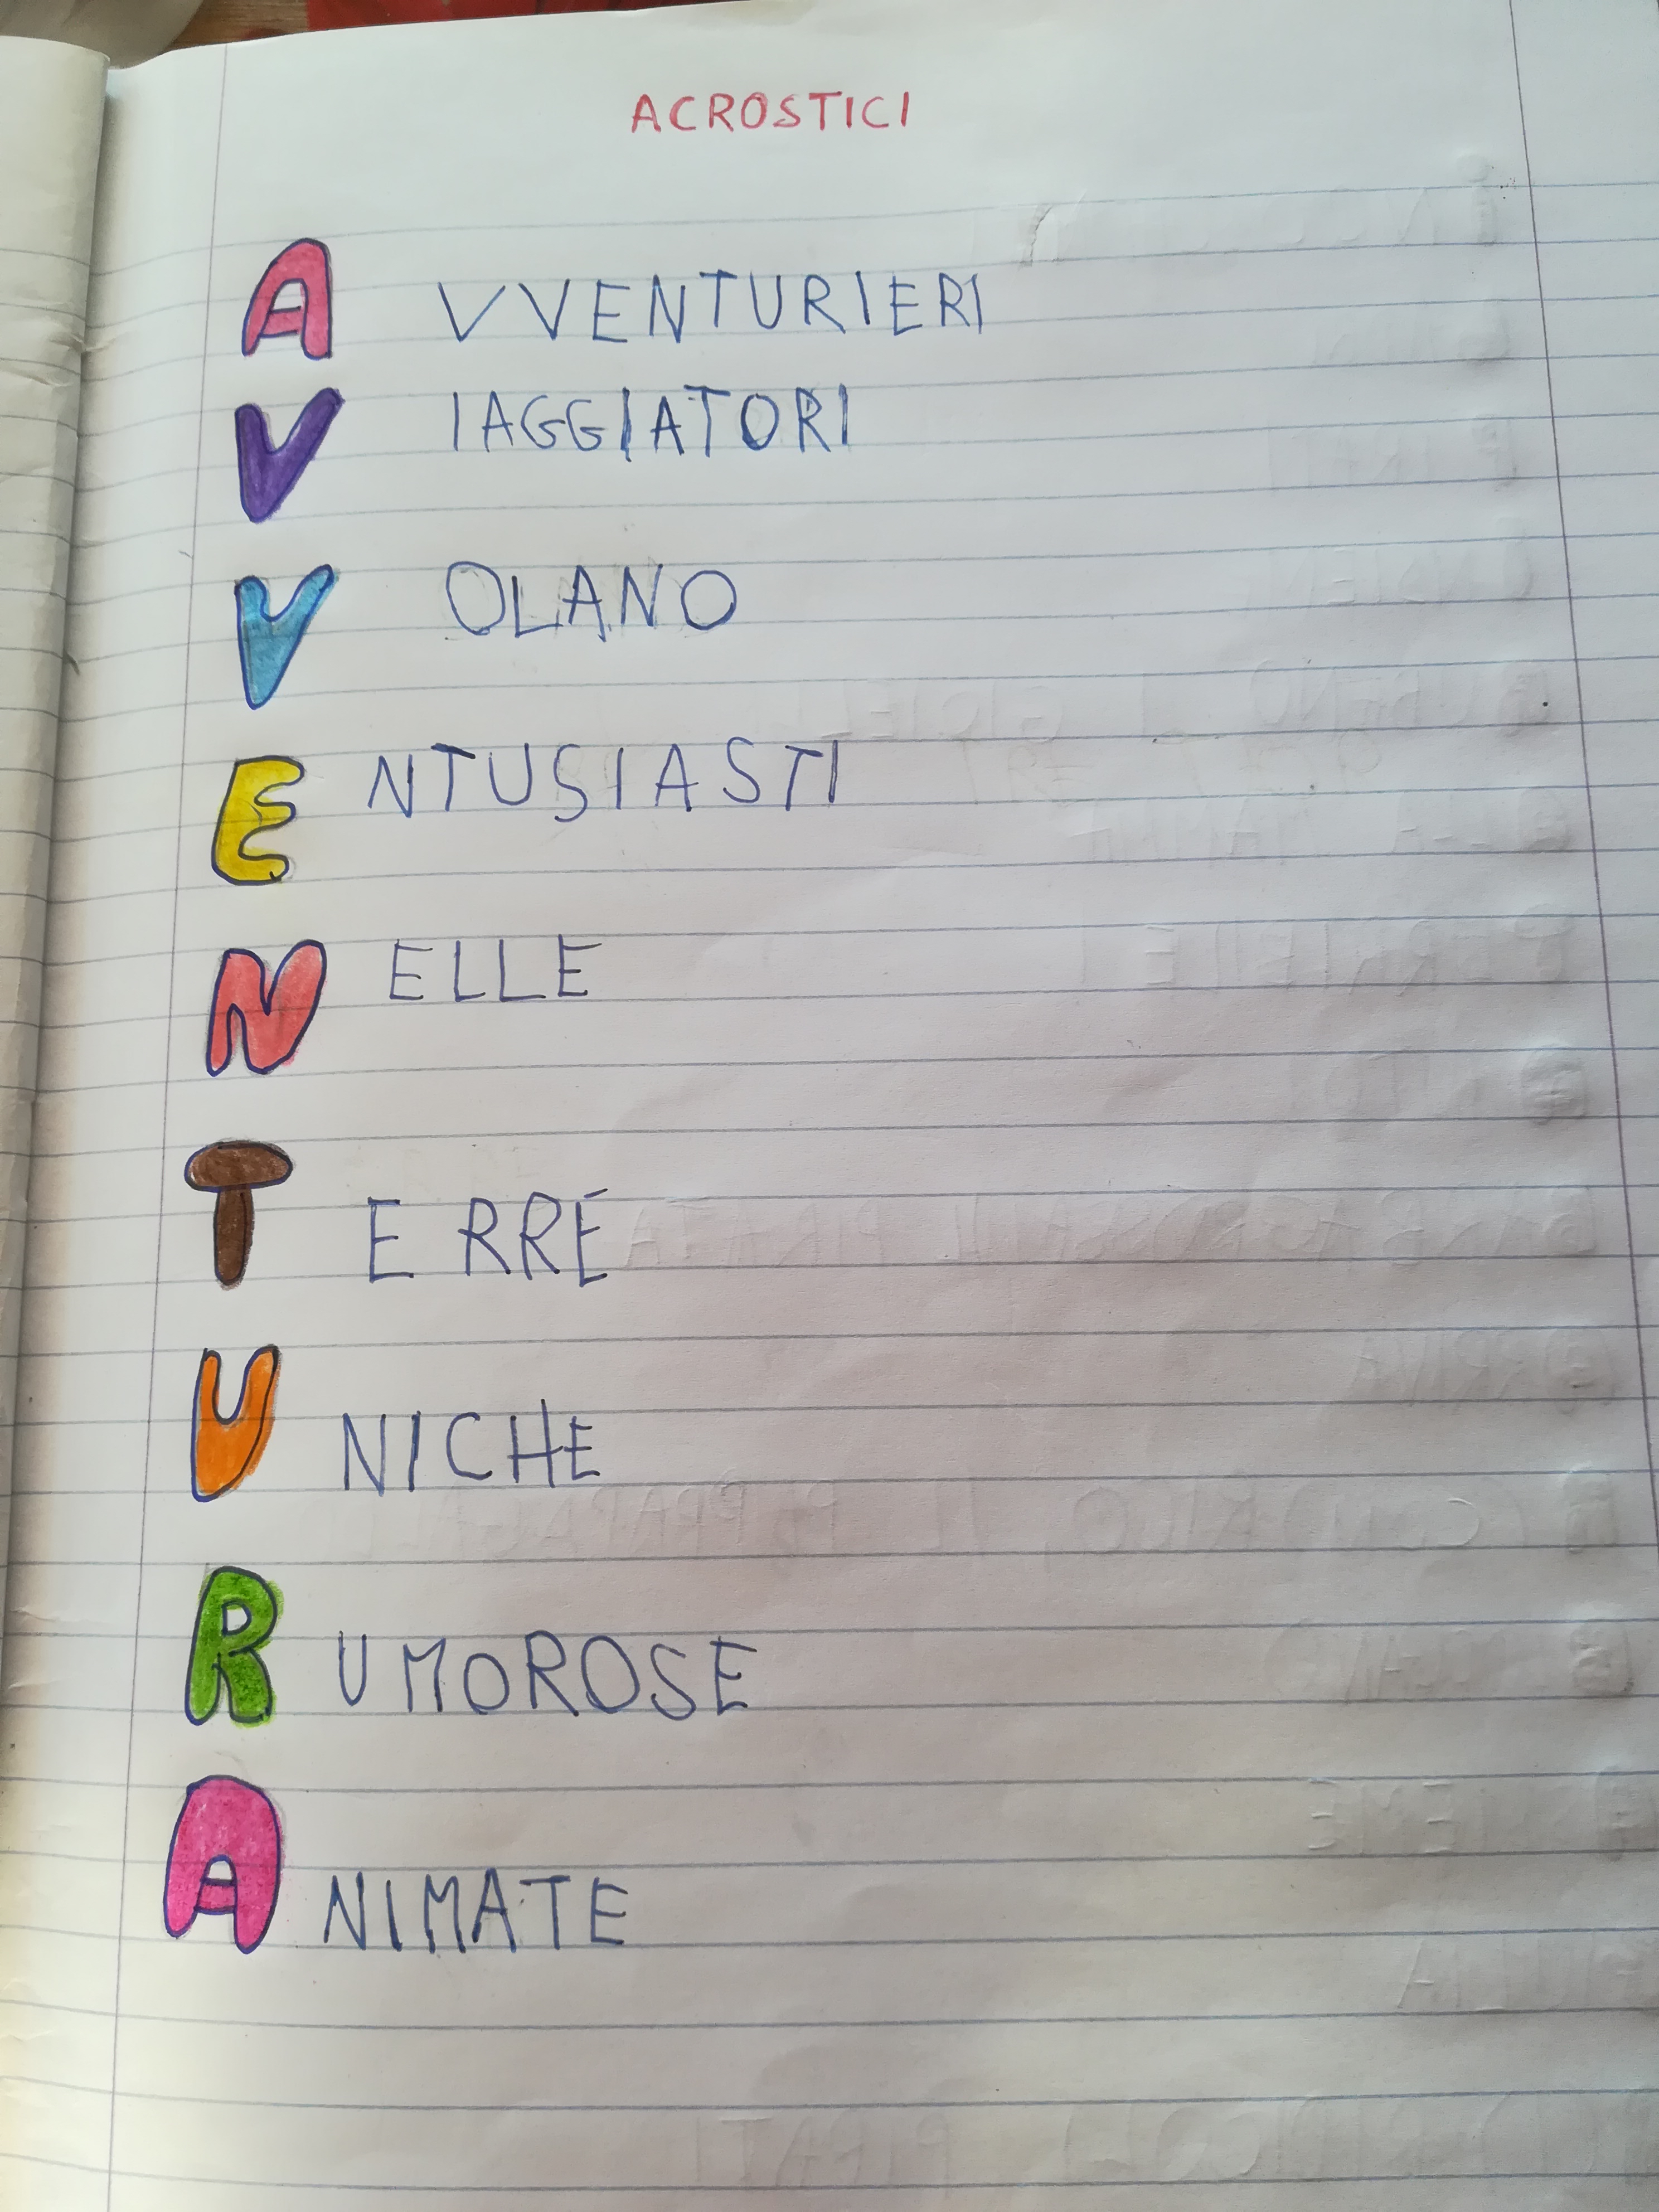 ACROSTICI
AVVENTURIERI
VIAGGIATORI
VOLANO
ENTUSIASTI
NELLE
TERRE
UNICHE
RUMOROSE
ANIMATE